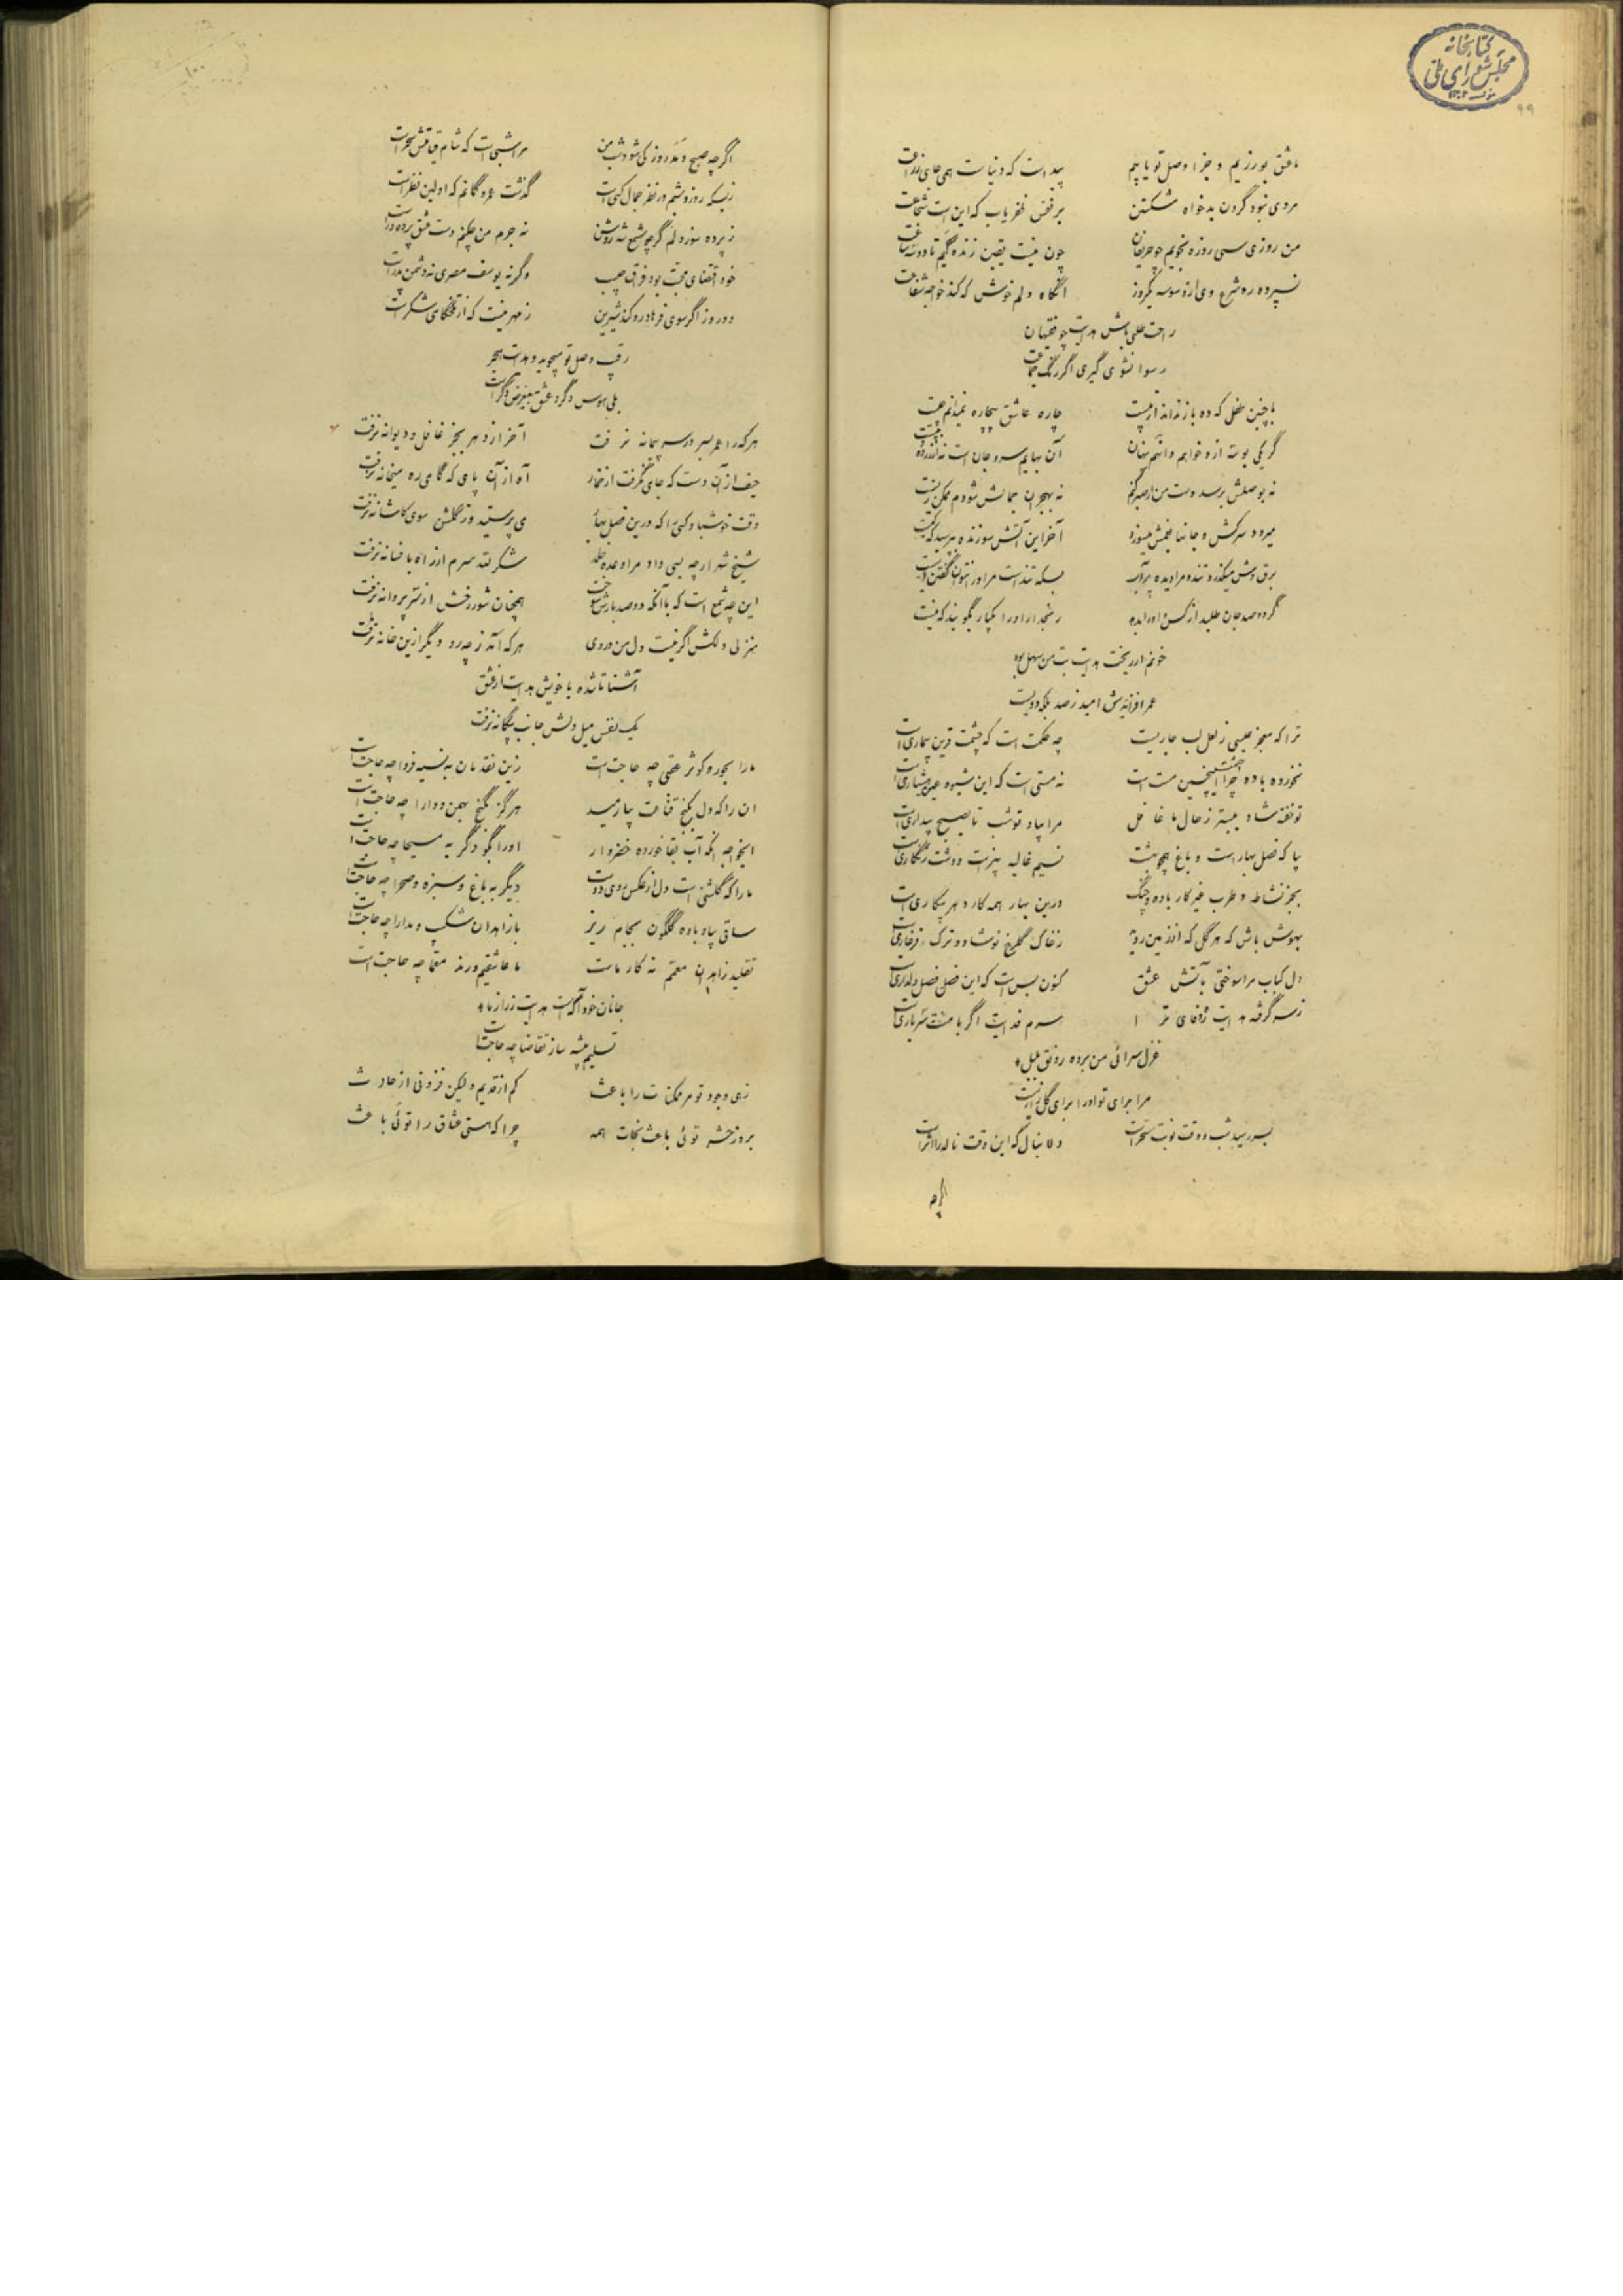 کتابخانه
مجلس شورای ملی
۹۹
ما عشق بورزیم و جزا وصل تو یابیم پیداست که دنیاست همی جای زراعت
مردی نبود گردن بدخواه شکستن بر نفس ظفر یاب که این است شجاعت
من روزی سی روزه نجویم چو حریفان چون نیست یقین زنده کیم تا دو سه ساعت
نسپرده ره شرع وی از وسوسه یکروز آنگاه دلم خوش که کند خواجه شفاعت
راحت طلبی باش هدایت چو فقیهان
رسوا نشوی گیری اگر رنگ جماعت
با چنین طفلی که ده باز نداند از بیست چاره عاشق بیچاره نمیدانم چیست
گر یکی بوسه ازو خواهم و آنهم پنهان آن بها
نه بوصلش برسد دست من از صبر کنم نه بهجران جمالش شودم ممکن زیست
میرود سرکش و جانها بغمش میسوزد آخر این آتش سوزنده بپرسید که کیست
برق وش میگذرد تند و مرا دیده پر آب بسکه تند است مر او را نتوان گفتن ایست
گر دو صد جان طلبد از کس و او را بدهد رنجد ار او را یکبار بگویند که نیست
خونم ار ریخت هدایت بت من سهل بود
عمر افزایدش امید ز صد بلکه دویست
ترا که معجز عیسی ز لعل لب جاریست چه حکمت است که چشمت قرین بیماری است
نخورده باده چرا چشمت اینچنین مست است نه مستی است که این شیوه عین هشیاری است
تو خفته شاد ببستر ز حال ما غافل مرا بیاد تو شب تا بصبح بیداری است
بیا که فصل بهار است و باغ همچو بهشت نسیم غالیه بیز است و دشت زنگاری است
بجز نشاط و طرب غیر کار باده و چنگ درین بهار همه کار دهر بیکاری است
بهوش باش که هر گل که از زمین روید ز خاک گلرخ نوشاد و ترک فرخاری است
دل کباب مرا سوختی بآتش عشق کنون بس است که این فصل فصل دلداری است
ز سر گرفته هدایت ره وفای ترا سرم فدایت اگر با منت سر یاری است
غزل سرائی من برده رونق بلبل
مرا برای تو او را برای گل زاری است
بسر رسید شب و وقت نوبت سحر است دلا بنال که این وقت ناله را اثر است
اگرچه
اگرچه صبح دمد روز کی شود شب من مرا شبی است که شام قیامتش سحر است
ز بسکه روز و شبم در نظر جمال کسی است گذشت عمر و گمانم که اولین نظر است
ز پرده سوز دلم گر چو شمع شد روشن نه جرم من چکنم دست عشق پرده در است
خود اقتضای محبت بود فراق حبیب وگرنه یوسف مصری نه دشمن پدر است
دو روز اگر سوی فرهاد رو کند شیرین ز مهر نیست که از تلخکامی شکر است
رقیب وصل تو میجوید و هدایت هجر
بلی هوس دگر و عشق بی‌غرض دگر است
هر که را عمر بسر در سر پیمانه نرفت آخر از دهر بجز غافل و دیوانه نرفت
حیف از آن دست که جامی نگرفت از خمار آه از آن پای که گامی ره میخانه نرفت
وقت خوش باد کسی را که درین فصل بهار می پرستید و ز گلشن سوی کاشانه نرفت
شیخ شهر ارچه بسی داد مرا وعده خلد شکر لله سرم از راه بافسانه نرفت
این چه شمع است که با آنکه دو صد بارش سوخت همچنان شور رخش از سر پروانه نرفت
منزلی دلکش اگر نیست دل من ز چه روی هر که آمد ز چه رو دیگر ازین خانه نرفت
آشنا تا شده با خویش هدایت از عشق
یک نفس میل دلش جانب بیگانه نرفت
ما را بحور و کوثر عقبی چه حاجت است زین نقد مان به نسیه فردا چه حاجت است
آن را که دل بکنج قناعت بیارمید هرگز بگنج بهمن و دارا چه حاجت است
ایخواجه آنکه آب بقا خورده خضروار او را بگو دگر به مسیحا چه حاجت است
ما را که گلشنی است دل از عکس روی دوست دیگر به باغ و سبزه و صحرا چه حاجت است
ساقی بیار باده گلگون بجام ریز با زاهدان شکیب و مدارا چه حاجت است
تقلید زاهدان معمم نه کار ماست ما عاشقیم و رند معما چه حاجت است
جانان خود آگه است هدایت ز راز ما
تسلیم پیشه ساز تقاضا چه حاجت است
زهی وجود تو مر ممکنات را باعث کم از قدیم ولیکن فزونی از حادث
بروز حشر توئی باعث نجات همه چرا که هستی عشاق را توئی باعث